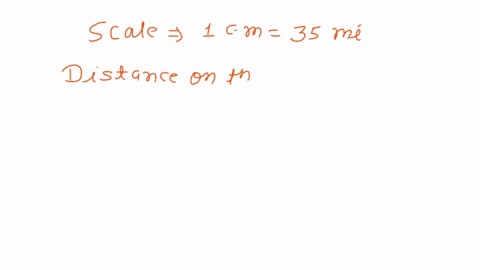 Scale ⇒ 1 cm = 35 mi
Distance on th